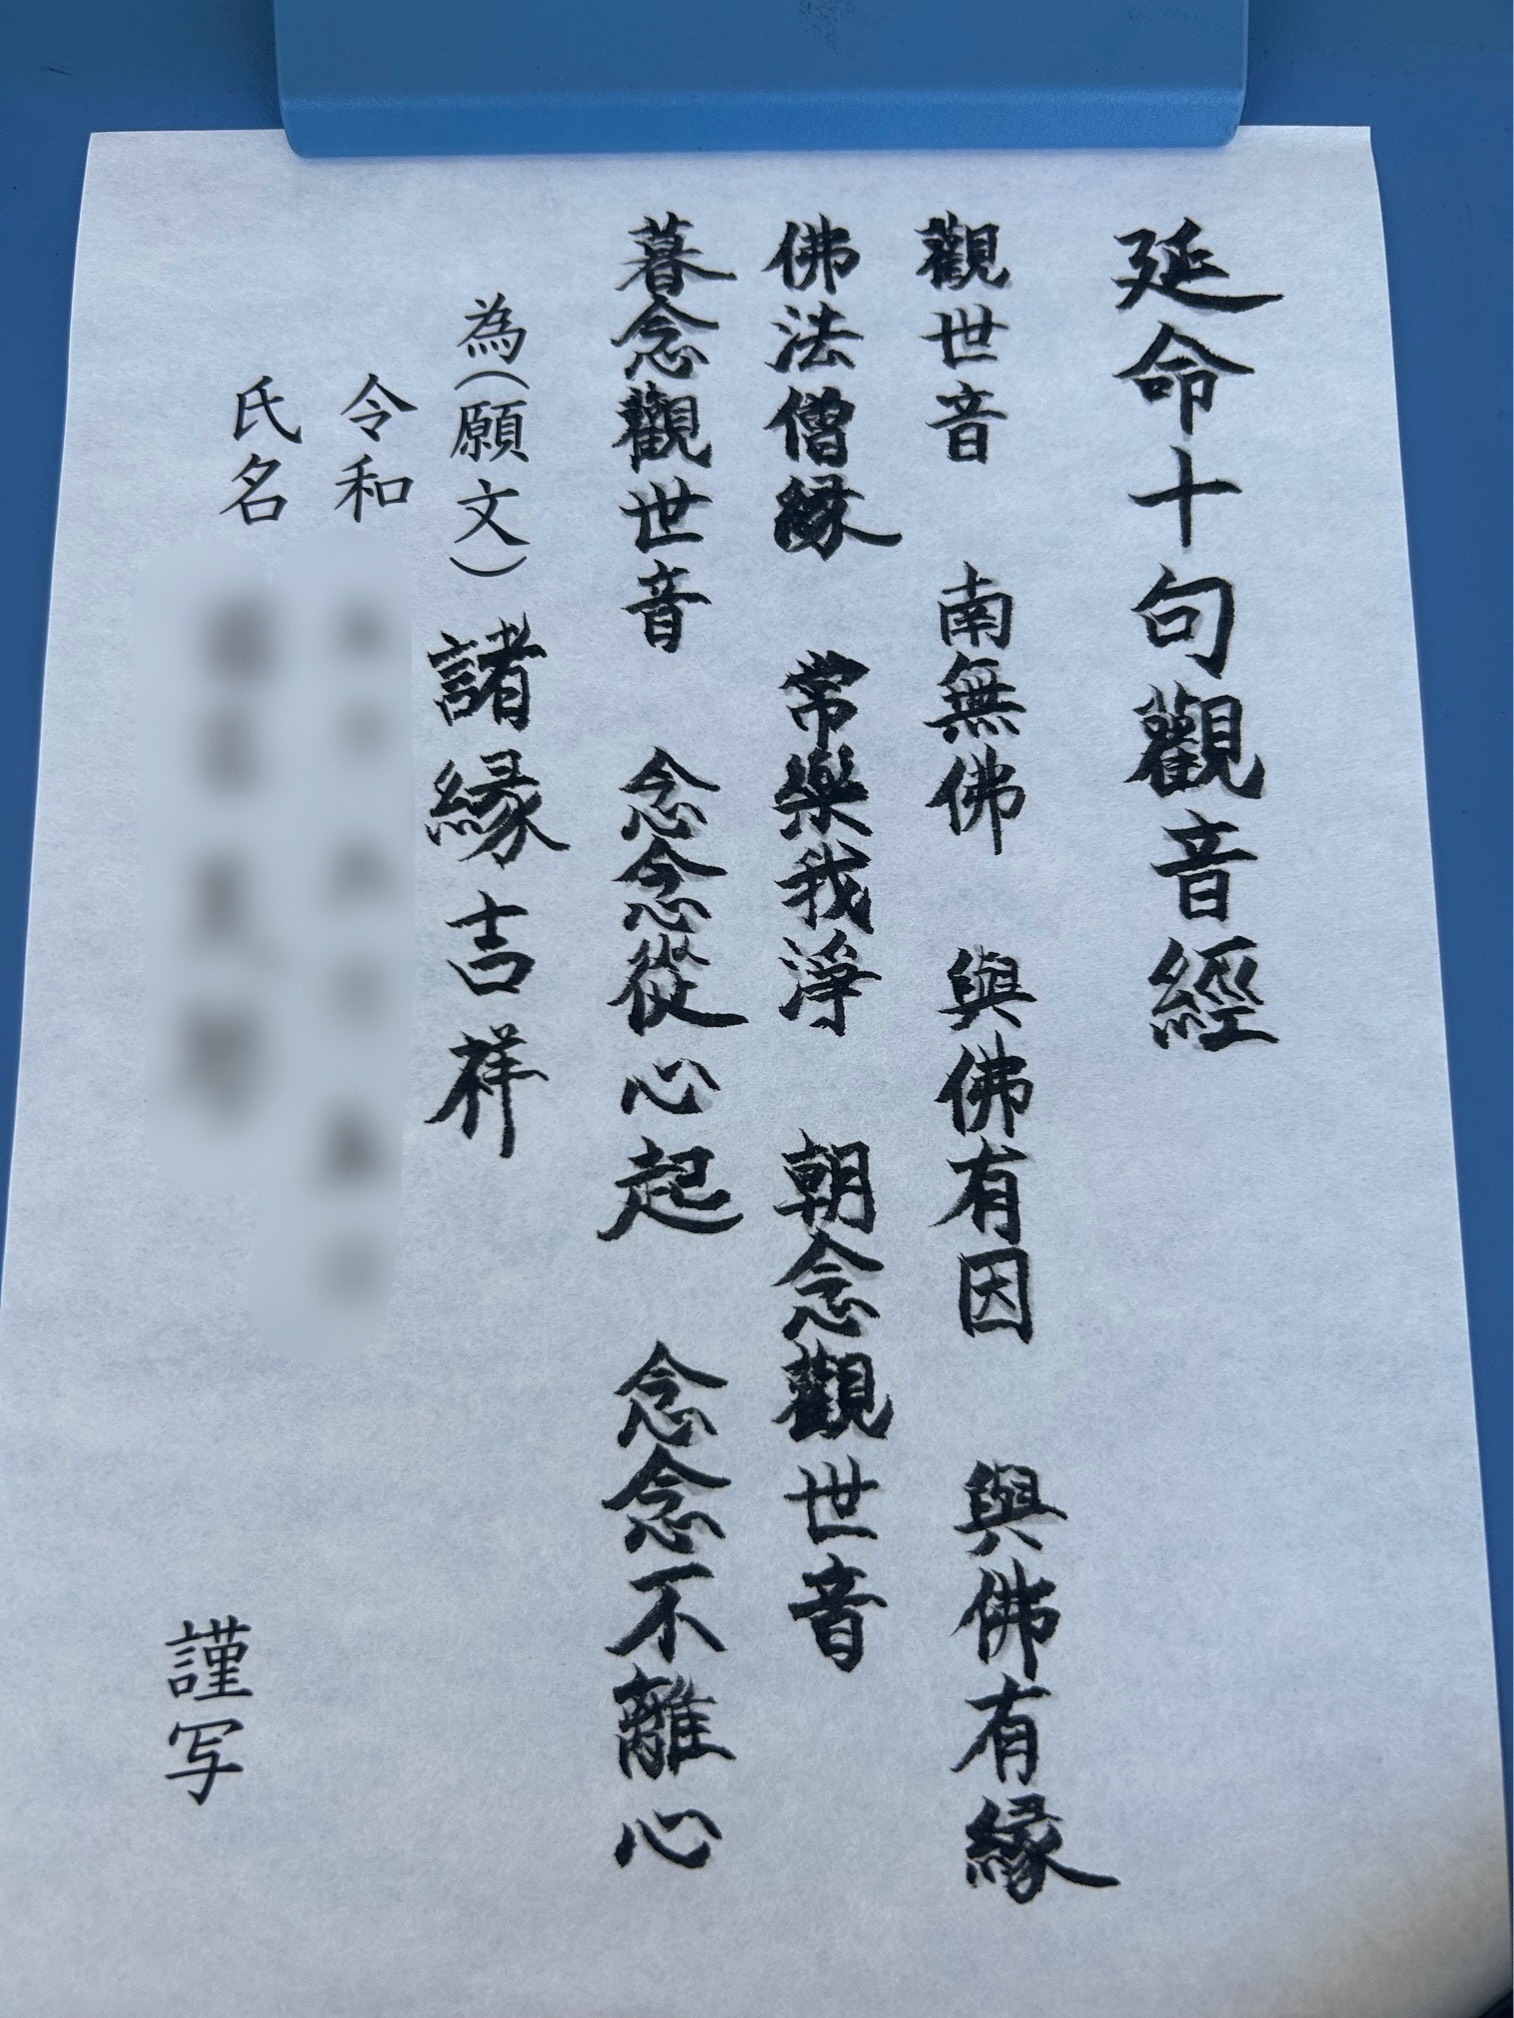 延命十句觀音經
觀世音　南無佛　與佛有因　與佛有縁
佛法僧縁　常樂我淨　朝念觀世音
暮念觀世音　念念從心起　念念不離心
為(願文)諸縁吉祥
令和
氏名　謹写